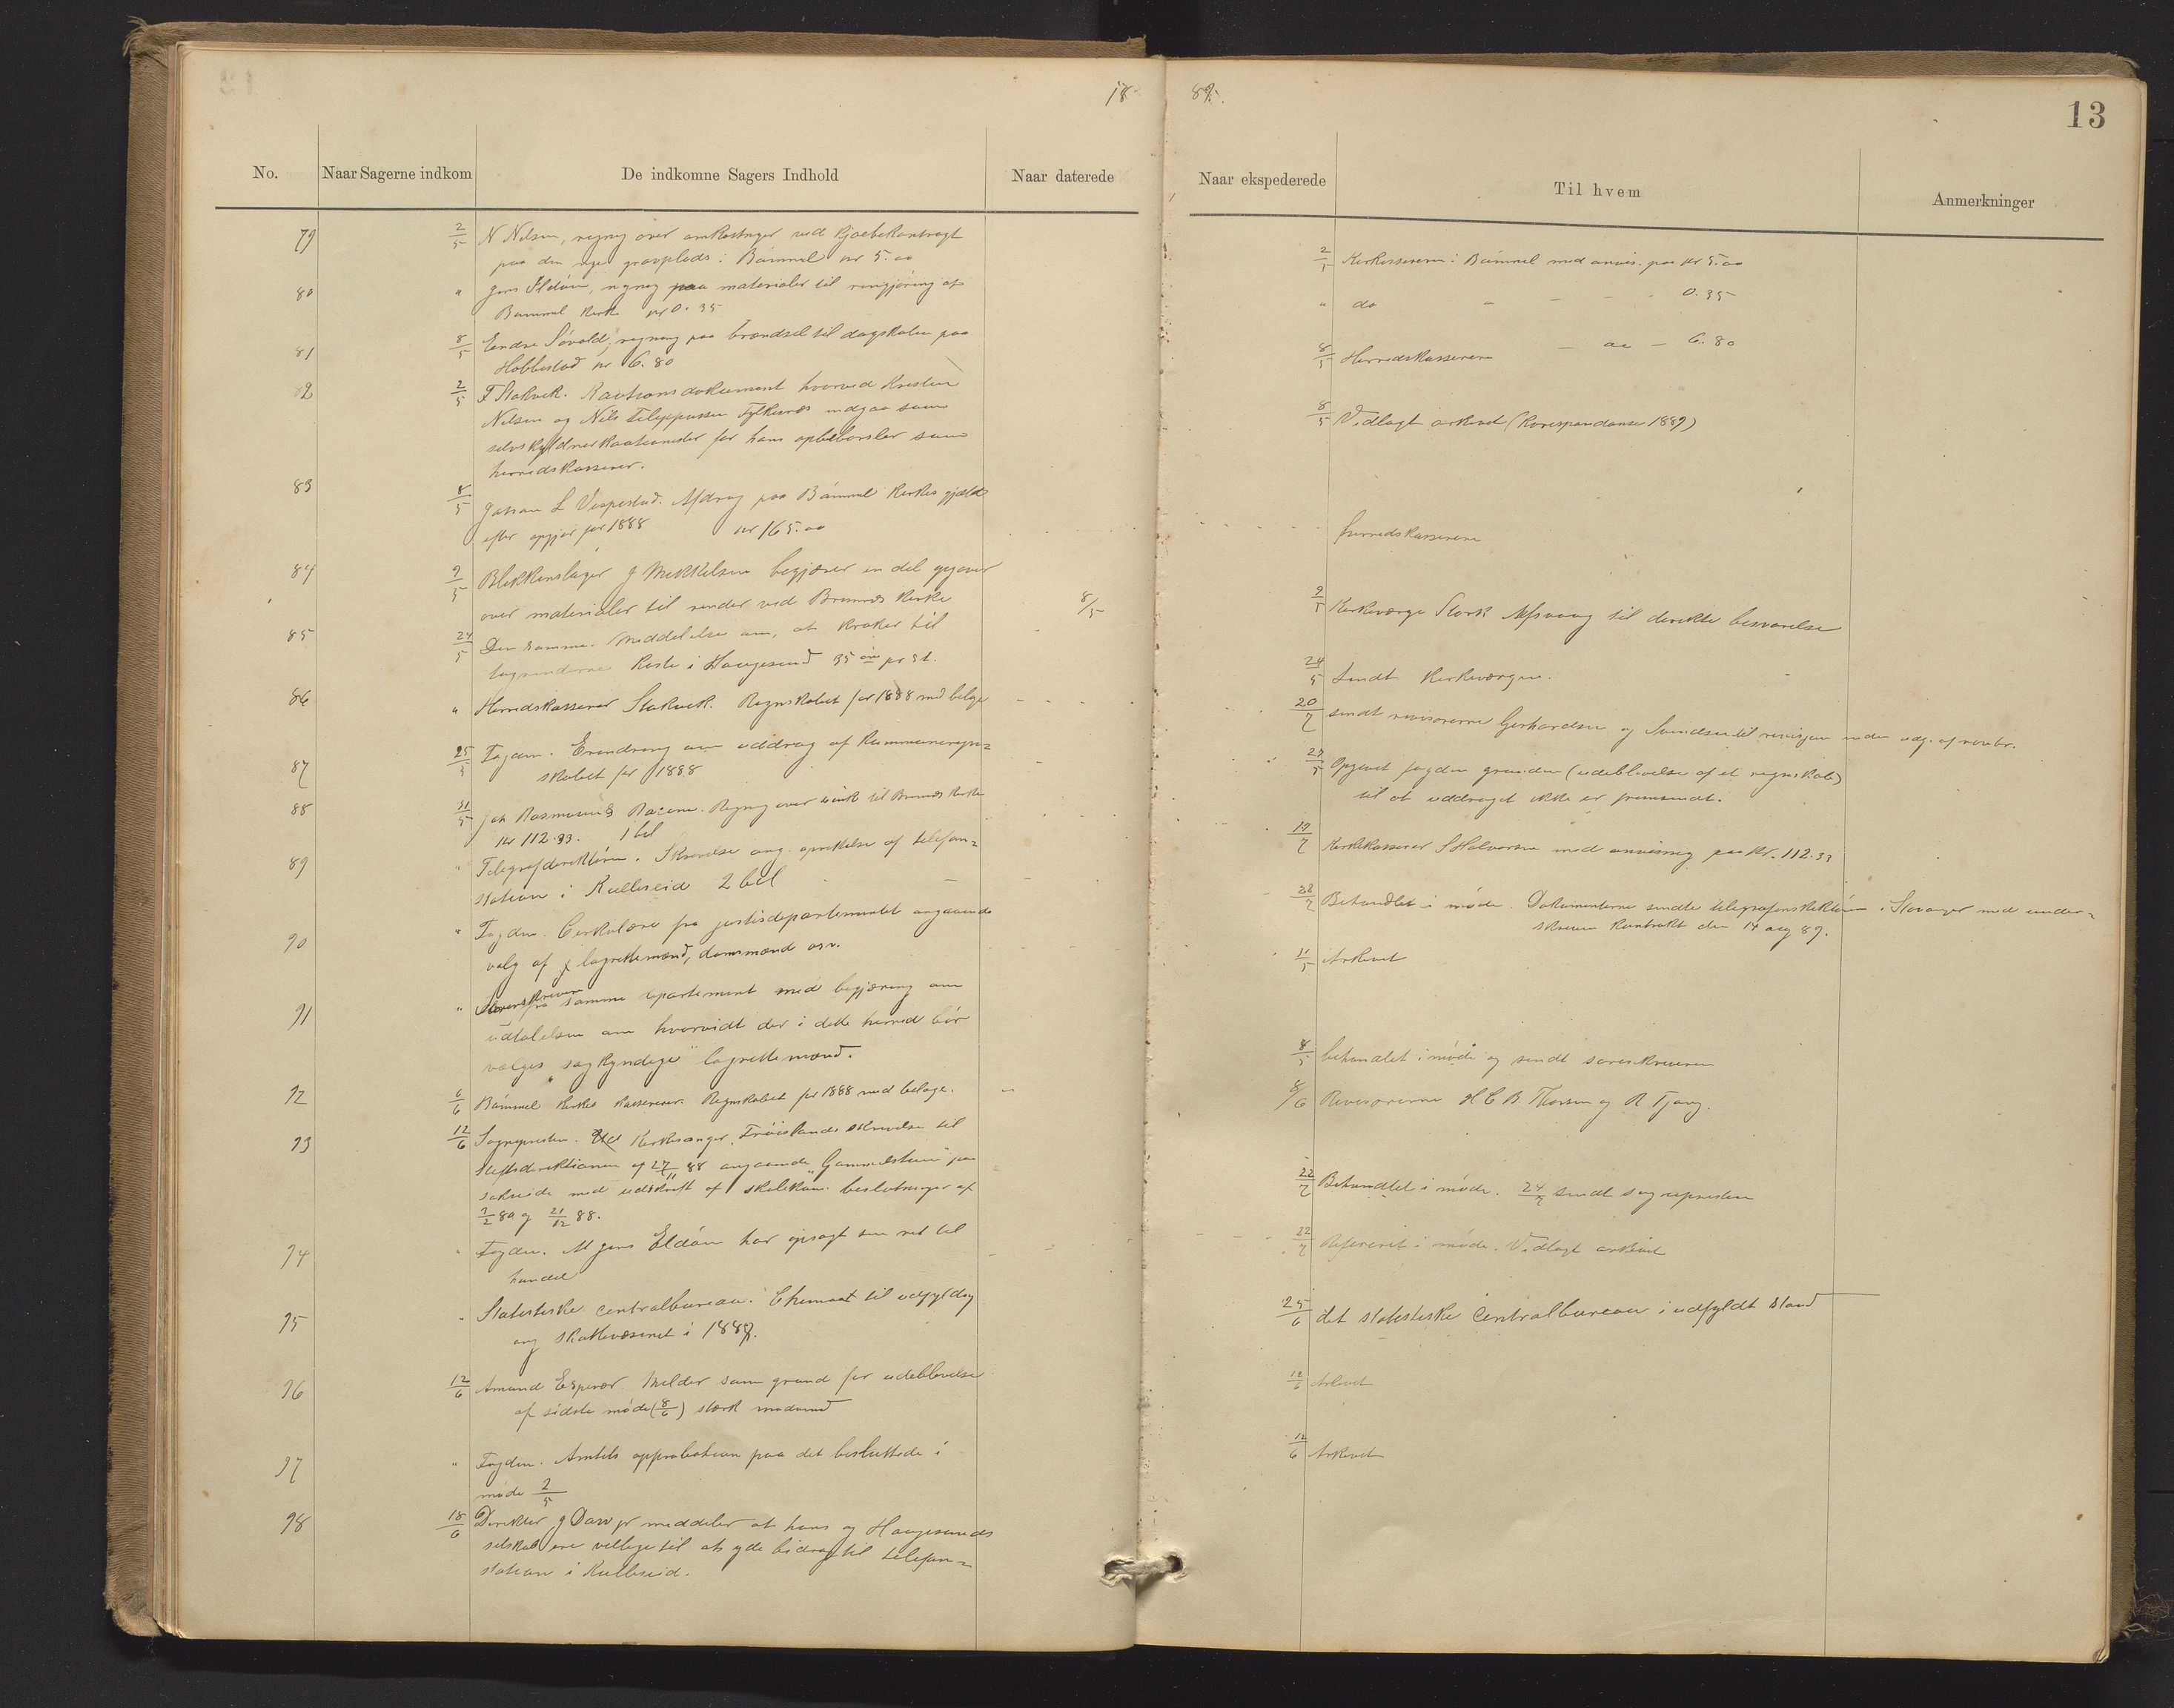 18
No.
Naar Sagerne indkom
De indkomne Sagers Indhold
Naar daterede
79 2/5 N Nilsen, regning over omkostninger ved kjøbekontragt
paa den nye gravplads i Bømmel kr 5.00
80 " Jens Eldøin, regning paa materialer til rengjøring af
Bømmel kirke kr 0.35
81 8/5 Endre Søvold, regning paa brændsel til dagskolen paa
Hobbestad kr 6.80
82 2/5 F Stokvik. Kautionsdokument hvorved Kristen
Nilsen og Nils Filippussen Fylkesnes indgaa som
selvskyldnerkautionister for hans opbebørsler som
herredskasserer.
83 8/5 L Vespestad. Afdrag paa Bømmel kirkes gjæld
efter opgjør for 1888 kr 165.00
84 9/5 Blikkenslager J Mikkelsen begjærer en del opgaver
over materialer til render ved Bremnes kirke 8/5
85 24/5 Den samme. Meddelelse om, at kroker til
tagrenderne koste i Haugesund 35 øre pr st.
86 " Herredskasserer Stokvik. Regnskabet for 1888 med belage
87 25/5 Fogden. Erindring om uddrag af kommuneregn=
skabet for 1888
88 31/5 Joh Rasmusen & Racine. Regning over sink til Bremnes kirke
kr 112.33. 1 bil
89 " Telegrafdirektøren. Skrivelse ang. oprettelse af telefon=
station i Kulleseid 2 bil
90 " Fogden. Cirkulære fra justisdepartementet angaaende
valg af lagrettemænd, domsmænd osv.
91 " Sorenskriveren fra samme departement med begjæring om
udtalelse om hvorvidt der i dette herred bør
vælges "sagkyndige" lagrettemænd.
92 6/6 Bømmel kirkes kasserer. Regnskabet for 1888 med belage.
93 12/6 Sognepresten. Kirkesanger Frøislands skrivelse til
stiftsdirektionen af 27/11 88 angaaende "Gammelstuen" paa
med udskrift af skolekom. beslutninger af
7/2 89 og 21/12 88.
94 " Fogden. At Jens Eldøin har opsagt sin ret til
handel
95 " Statistiske centralbureau. Skemaet til udfyldning
ang skattevæsenet i 1889.
96 12/6 Amund Espevær. Melder som grund for udeblivelse
af sidste møde (8/6) stærk modvind
97 " Fogden. Amtets approbation paa det besluttede i
møde 2/5
98 18/6 Direktør J Daw jr meddeler at hans og Haugesunds
selskab ere villige til at yde bidrag til telefon=
station i Kulleseid.
89.
13
Naar ekspederede
Til hvem
Anmerkninger
2/5 Kirkekassereren i Bømmel med anvis. paa kr 5.00
" do - - - - 0.35
8/5 Herredskassereren - aa - 6.80
8/5 Vedlagt arkivet (Korrespondanse 1889)
herredskassereren
9/5 Kirkeværge Stork Alfsvaag til direkte besvarelse
24/5 Sendt kirkeværgen.
20/7 sendt revisorerne Gerhardsen og Svendsen til revisjon inden udg. af novbr.
27/5 Opgivet fogden grunden (udeblivelse af et regnskab)
til at uddraget ikke er fremsendt.
19/7 Kirkekasserer S Halvorsen med anvisning paa kr. 112.33
28/7 Behandlet i møde. Dokumenterne sendte telegrafinspektøren i Stavanger med under=
skreven kontrakt den 14 aug 89.
11/5 Arkivet
8/5 behandlet i møde og sendt sorenskriveren
8/6 Revisorerne H C B Thorsen og R Tjong.
22/7 Behandlet i møde. 24/7 sendt sognepresten
22/7 Refereret i møde. Vedlagt arkivet
25/6 det statistiske centralbureau i udfyldt stand
12/6 Arkivet
12/6 Arkivet